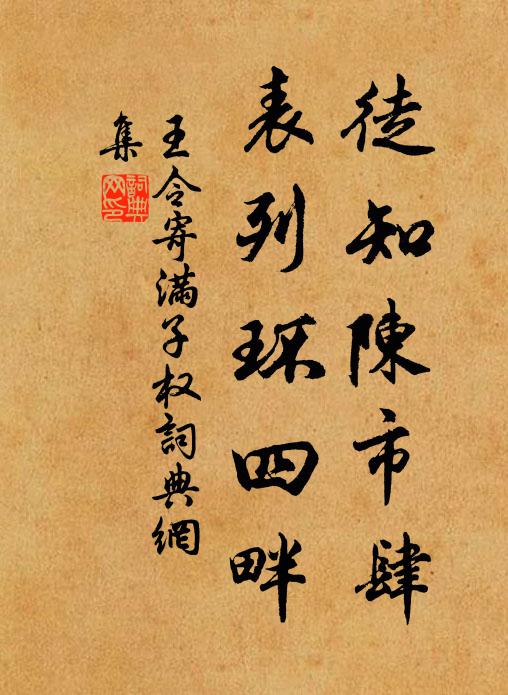 徒知陳市肆
表列环四畔
王令寄滿子权詞典網
集
詞典网印